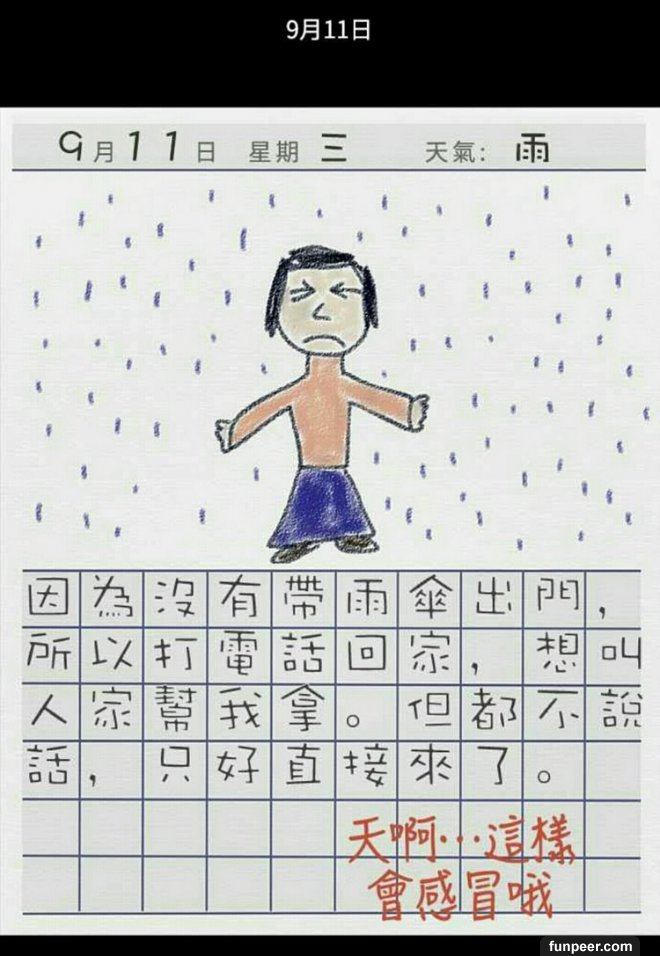 9月11日
9月11日 星期三 天氣: 雨
因為沒有帶雨傘出門,
所以打電話回家,想叫
人家幫我拿。但都不說
話,只好直接來了。
天啊…這樣
會感冒哦
funpeer.com